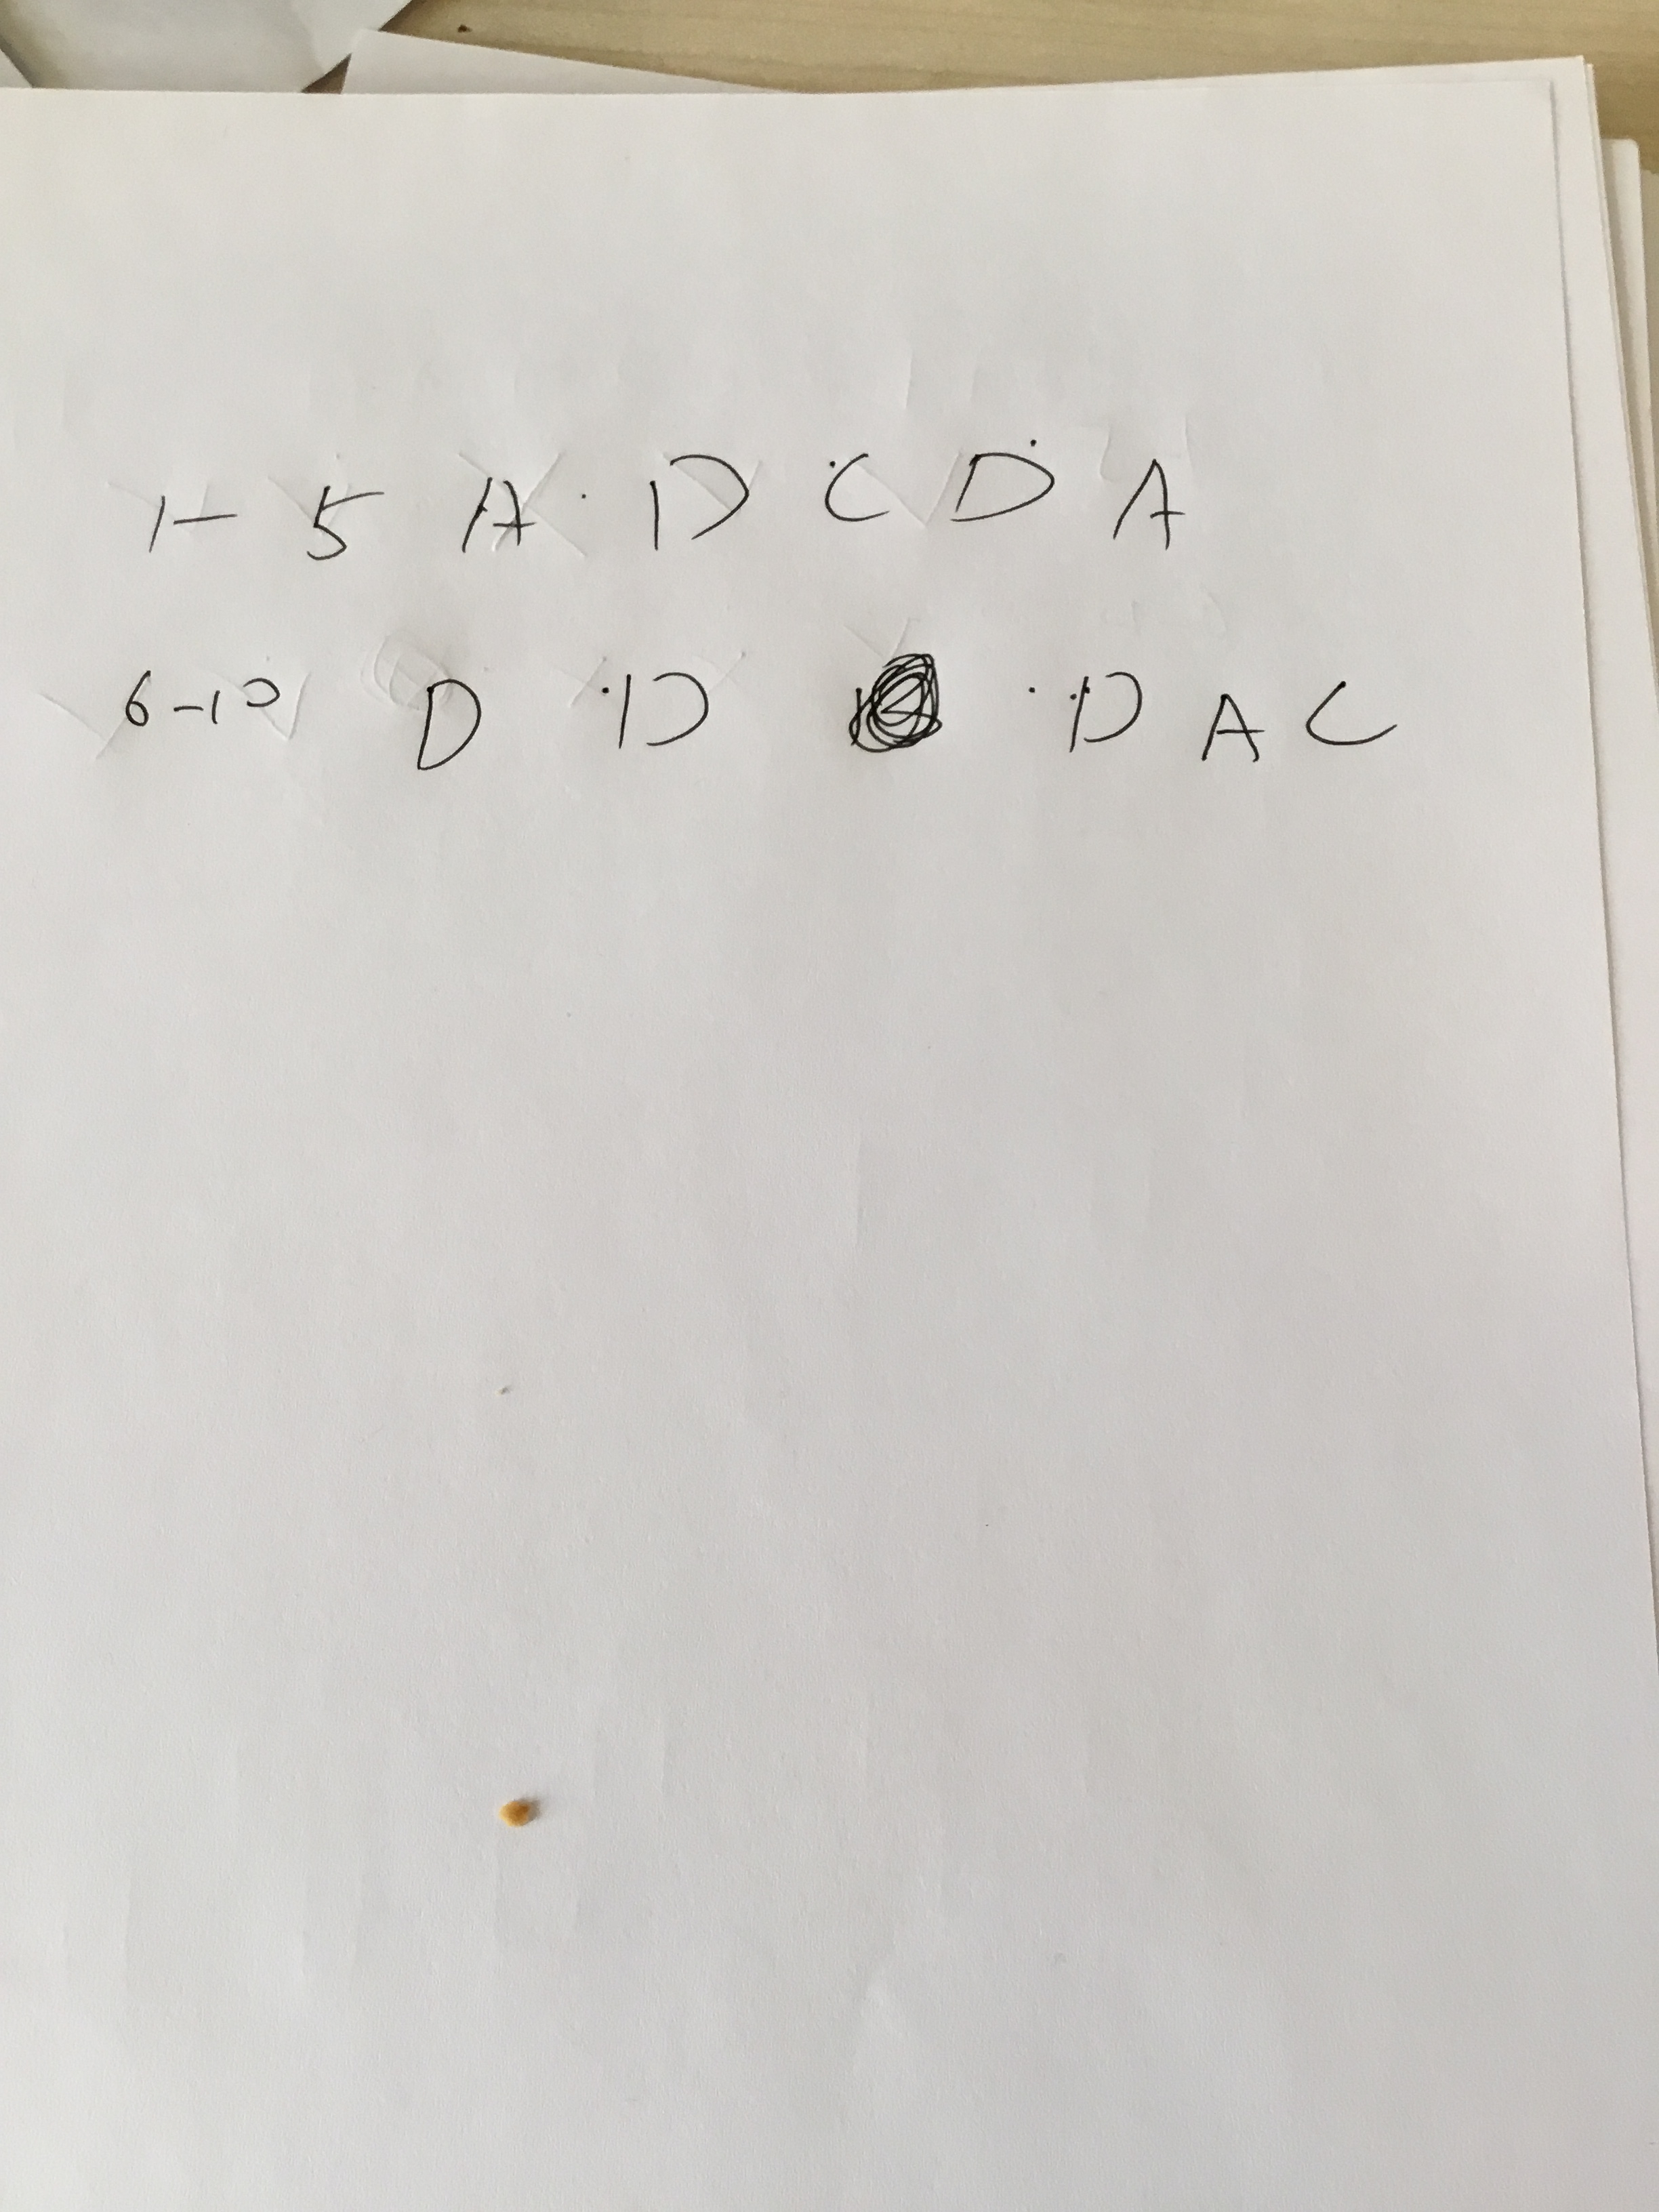 1-5 A D C D A
6-10 D D D A C